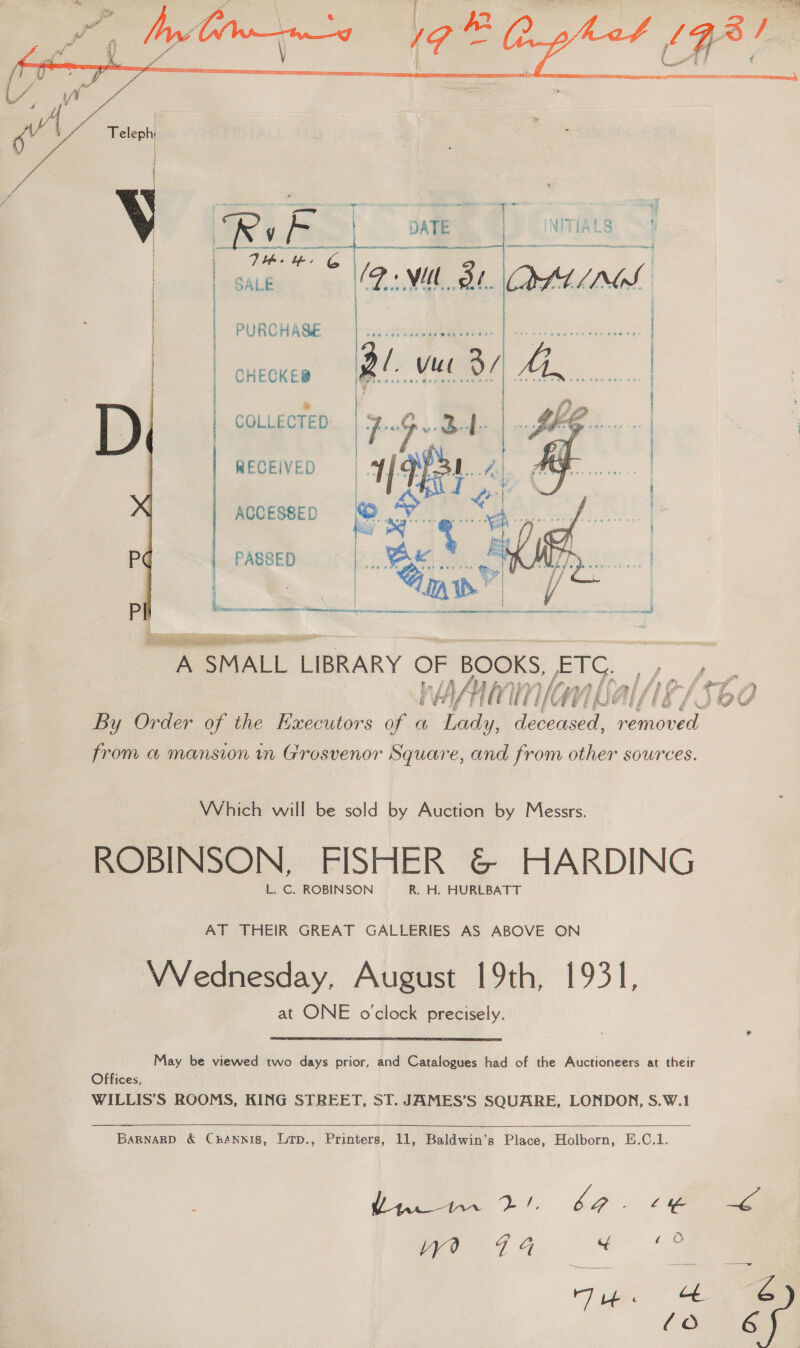 19th August 1931
Teleph
V
R & F DATE INITIALS
74. 4. 6
SALE 19. VIII. 31.
PURCHASE
CHECKED 21. VIII 31
COLLECTED 7.9.31.
RECEIVED
ACCESSED
PASSED
D
X
P
P
A SMALL LIBRARY OF BOOKS, ETC.
WA/HMM/Cm/Sal/18/560
By Order of the Executors of a Lady, deceased, removed
from a mansion in Grosvenor Square, and from other sources.
Which will be sold by Auction by Messrs.
ROBINSON, FISHER & HARDING
L. C. ROBINSON R. H. HURLBATT
AT THEIR GREAT GALLERIES AS ABOVE ON
Wednesday, August 19th, 1931,
at ONE o'clock precisely.
May be viewed two days prior, and Catalogues had of the Auctioneers at their
Offices,
WILLIS'S ROOMS, KING STREET, ST. JAMES'S SQUARE, LONDON, S.W.1
BARNARD & CRANNIS, LTD., Printers, 11, Baldwin's Place, Holborn, E.C.1.
21. 69. 14
99 4 10
74. 4 6
10 6